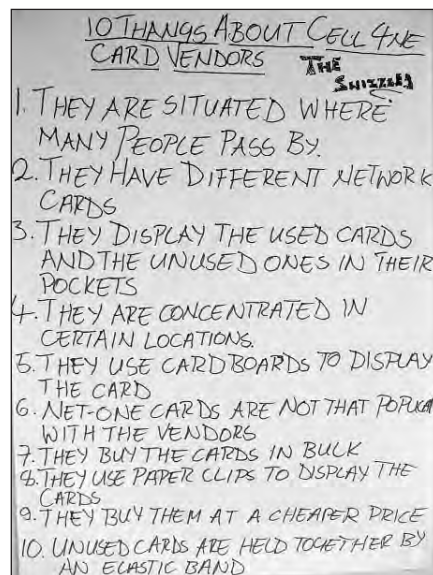 10 THANGS ABOUT CELL 4NE
CARD VENDORS
THE
SHIZZLES
1. THEY ARE SITUATED WHERE
MANY PEOPLE PASS BY.
2. THEY HAVE DIFFERENT NETWORK
CARDS
3. THEY DISPLAY THE USED CARDS
AND THE UNUSED ONES IN THEIR
POCKETS
4. THEY ARE CONCENTRATED IN
CERTAIN LOCATIONS.
5. THEY USE CARDBOARDS TO DISPLAY
THE CARD
6. NET-ONE CARDS ARE NOT THAT POPULA
WITH THE VENDORS
7. THEY BUY THE CARDS IN BULK
8. THEY USE PAPER CLIPS TO DISPLAY THE
CARDS
9. THEY BUY THEM AT A CHEAPER PRICE
10. UNUSED CARDS ARE HELD TOGETHER BY
AN ELASTIC BAND